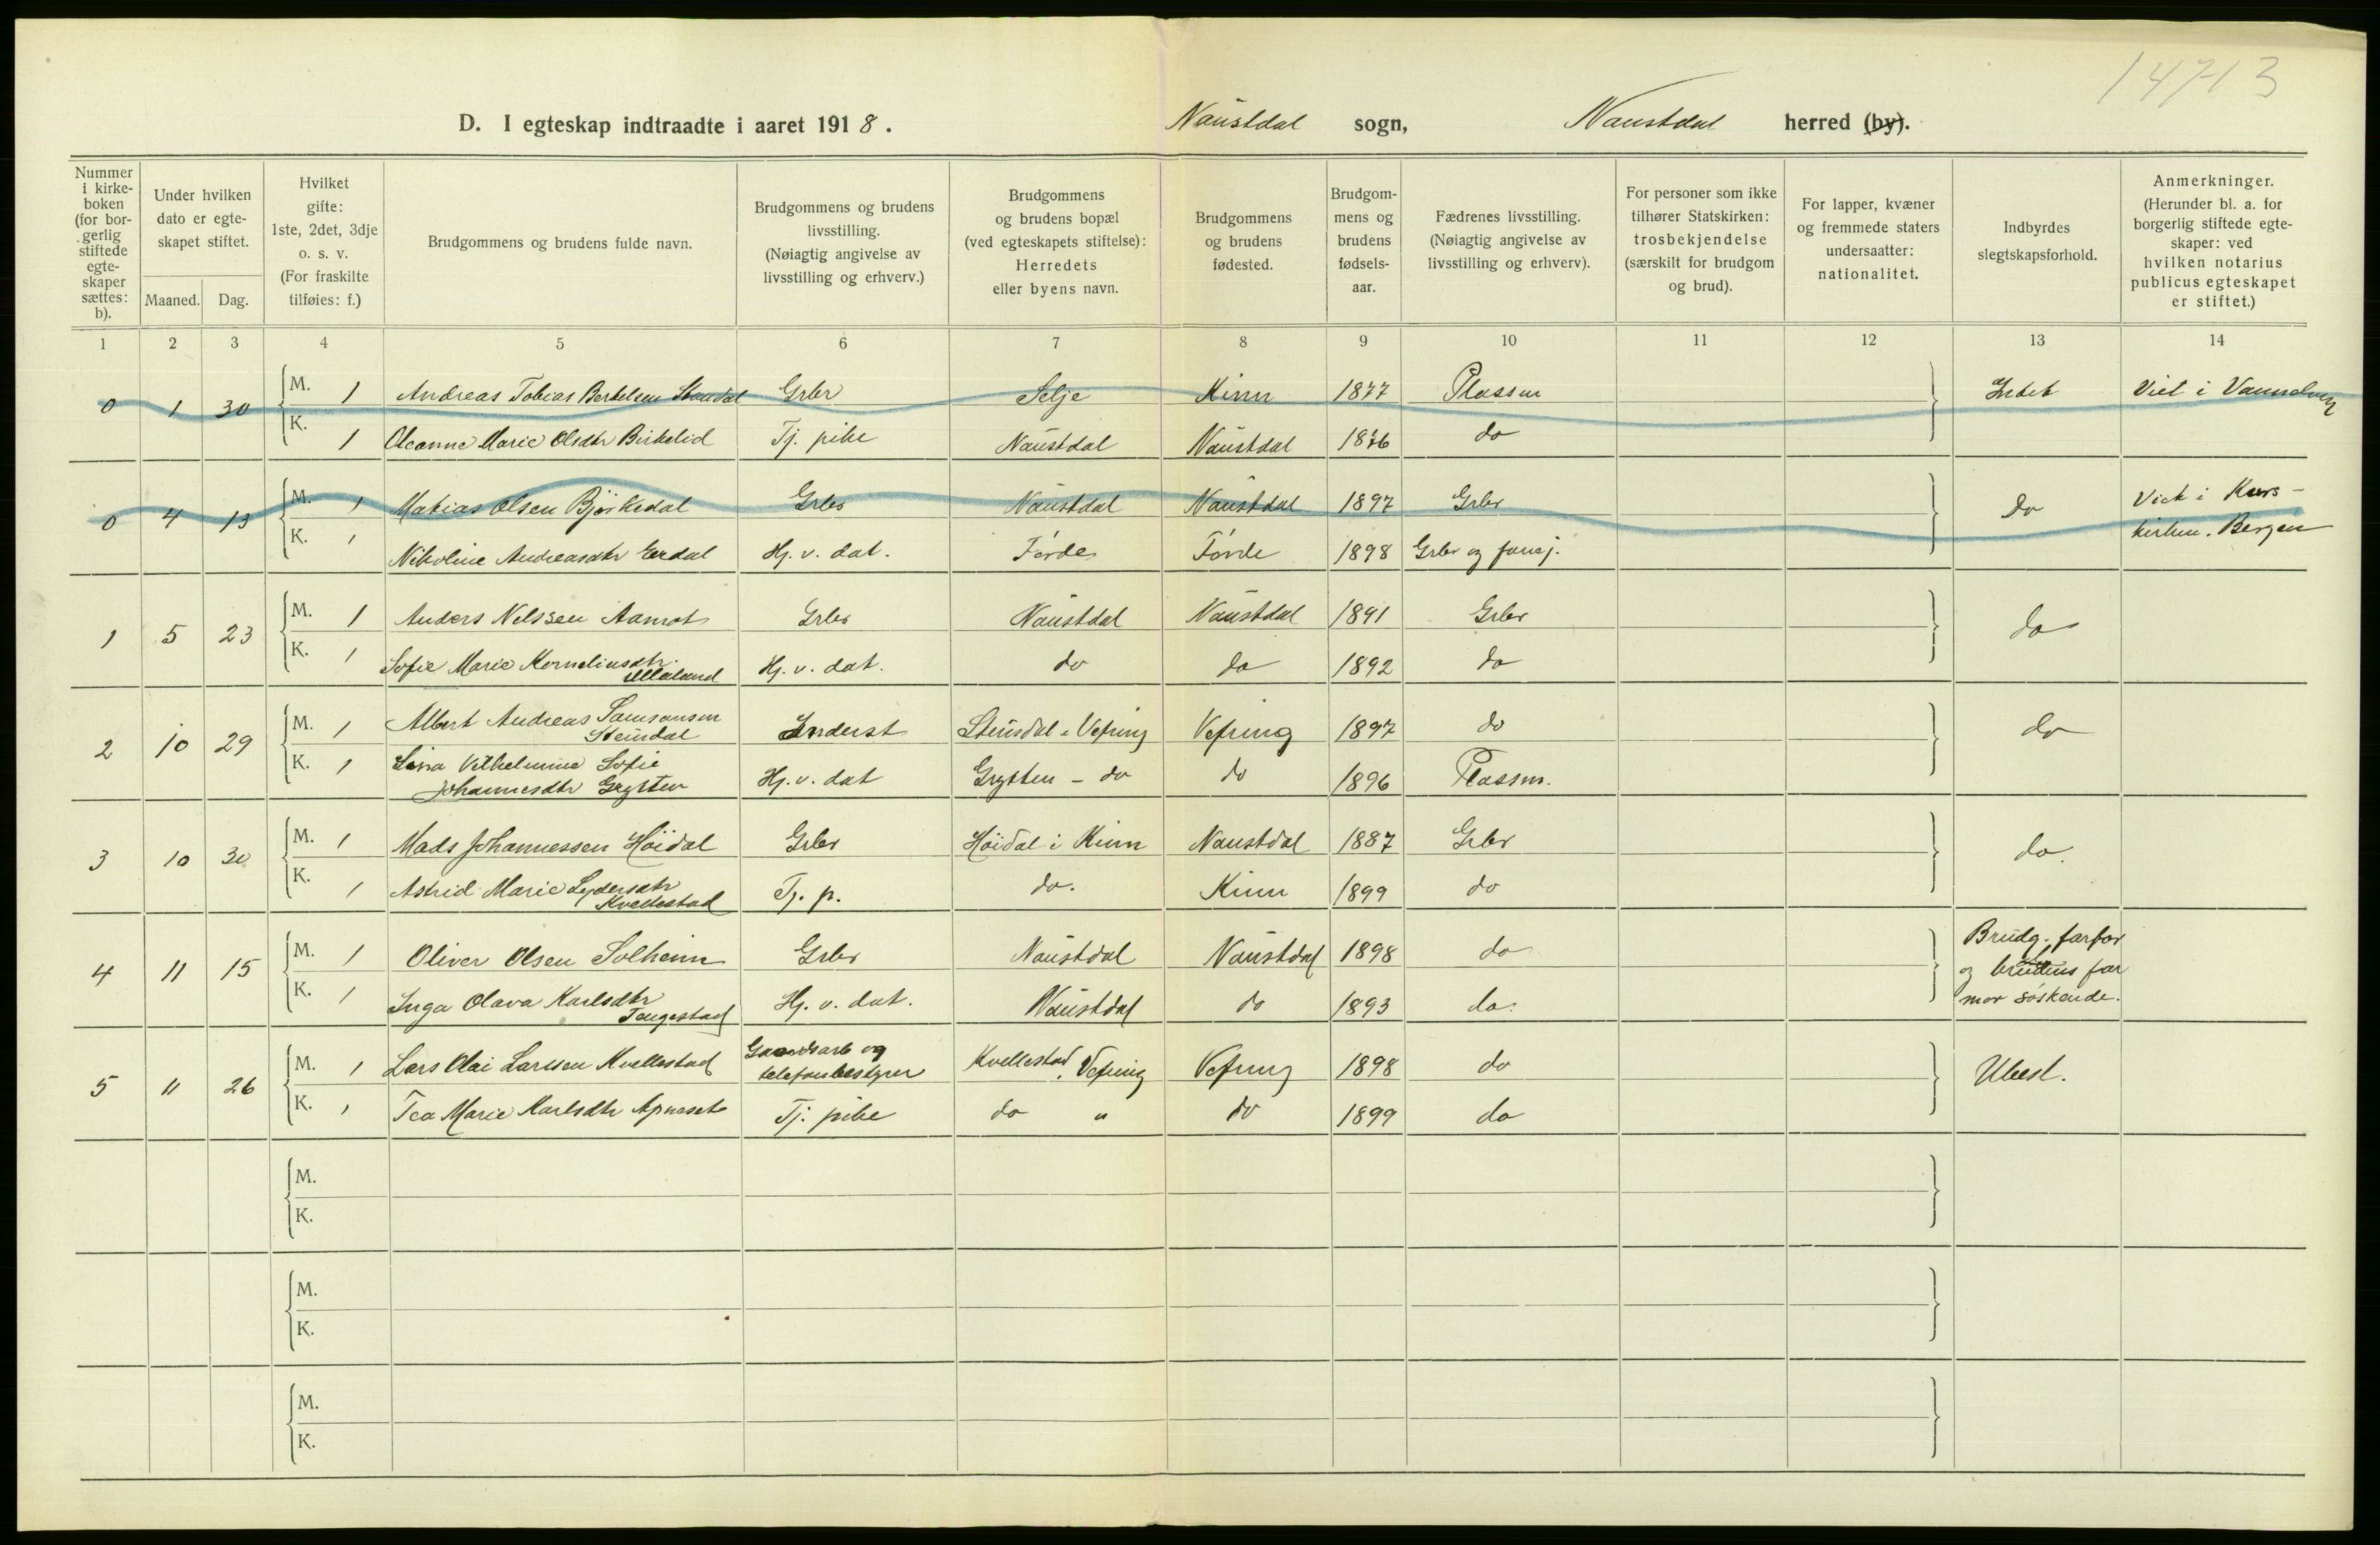 14713
D. I egteskap indtraadte i aaret 1918. Naustdal sogn, Naustdal herred (by).
Nummer i kirke- boken (for bor- gerlig stiftede egte- skaper sættes: b).
Under hvilken dato er egte- skapet stiftet.
Maaned. Dag.
Hvilket gifte: 1ste, 2det, 3dje o. s. v. (For fraskilte tilføies: f.)
Brudgommens og brudens fulde navn.
Brudgommens og brudens livsstilling. (Nøiagtig angivelse av livsstilling og erhverv.)
Brudgommens og brudens bopæl (ved egteskapets stiftelse): Herredets eller byens navn.
Brudgommens og brudens fødested.
Brudgom- mens og brudens fødsels- aar.
Fædrenes livsstilling. (Nøiagtig angivelse av livsstilling og erhverv).
For personer som ikke tilhører Statskirken: trosbekjendelse (særskilt for brudgom og brud).
For lapper, kvæner og fremmede staters undersaatter: nationalitet.
Indbyrdes slegtskapsforhold.
Anmerkninger. (Herunder bl. a. for borgerlig stiftede egte- skaper: ved hvilken notarius publicus egteskapet er stiftet.)
1 2 3 4 5 6 7 8 9 10 11 12 13 14
0 1 30 M. 1 Andreas Tobias Bertelsen Grbr Selje Kinn 1877 Plassm Intet Viet i
K. 1 Oleanne Marie Olsdtr Birkelid Tj. pike Naustdal Naustdal 1876 do
0 4 13 M. 1 Matias Olsen Björkedal Grbr Naustdal Naustdal 1897 Grbr do Viet i Kors-
kirken. Bergen
K. 1 Nikoline Andreasdtr Erdal Hj. v. dat. Førde Førde 1898 Grbr og
1 5 23 M. 1 Anders Nelssen Aamot Grbr Naustdal Naustdal 1891 Grbr do
K. 1 Sofie Marie Korneliusdtr Ullaland Hj. v. dat. do do 1892 do
2 10 29 M. 1 Albert Andreas Samsonsen Steindal Inderst Steindal i Vefring Vefring 1897 do do
K. 1 Lina Vilhelmine Sofie Johannesdtr Grytten Hj. v. dat Grytten - do do 1896 Plassm.
3 10 30 M. 1 Mads Johannessen Höidal Grbr Höidal i Kinn Naustdal 1887 Grbr do.
K. 1 Astrid Marie Lydersdtr Kvellestad Tj. p. do. Kinn 1899 do
4 11 15 M. 1 Oliver Olsen Solheim Grbr Naustdal Naustdal 1898 do Brudg. farfar
og brudens far
mor søskende.
K. 1 Inga Olava Karlsdtr Tengestad Hj. v. dat. Naustdal do 1893 do.
5 11 26 M. 1 Lars Olai Larssen Kvellestad Gaardsarb og telefonbestyrer Kvellestad, Vefring Vefring 1898 do Ubesl.
K. 1 Tea Marie Karlsdtr Apneset Tj. pike do " do 1899 do
M.
K.
M.
K.
M.
K.